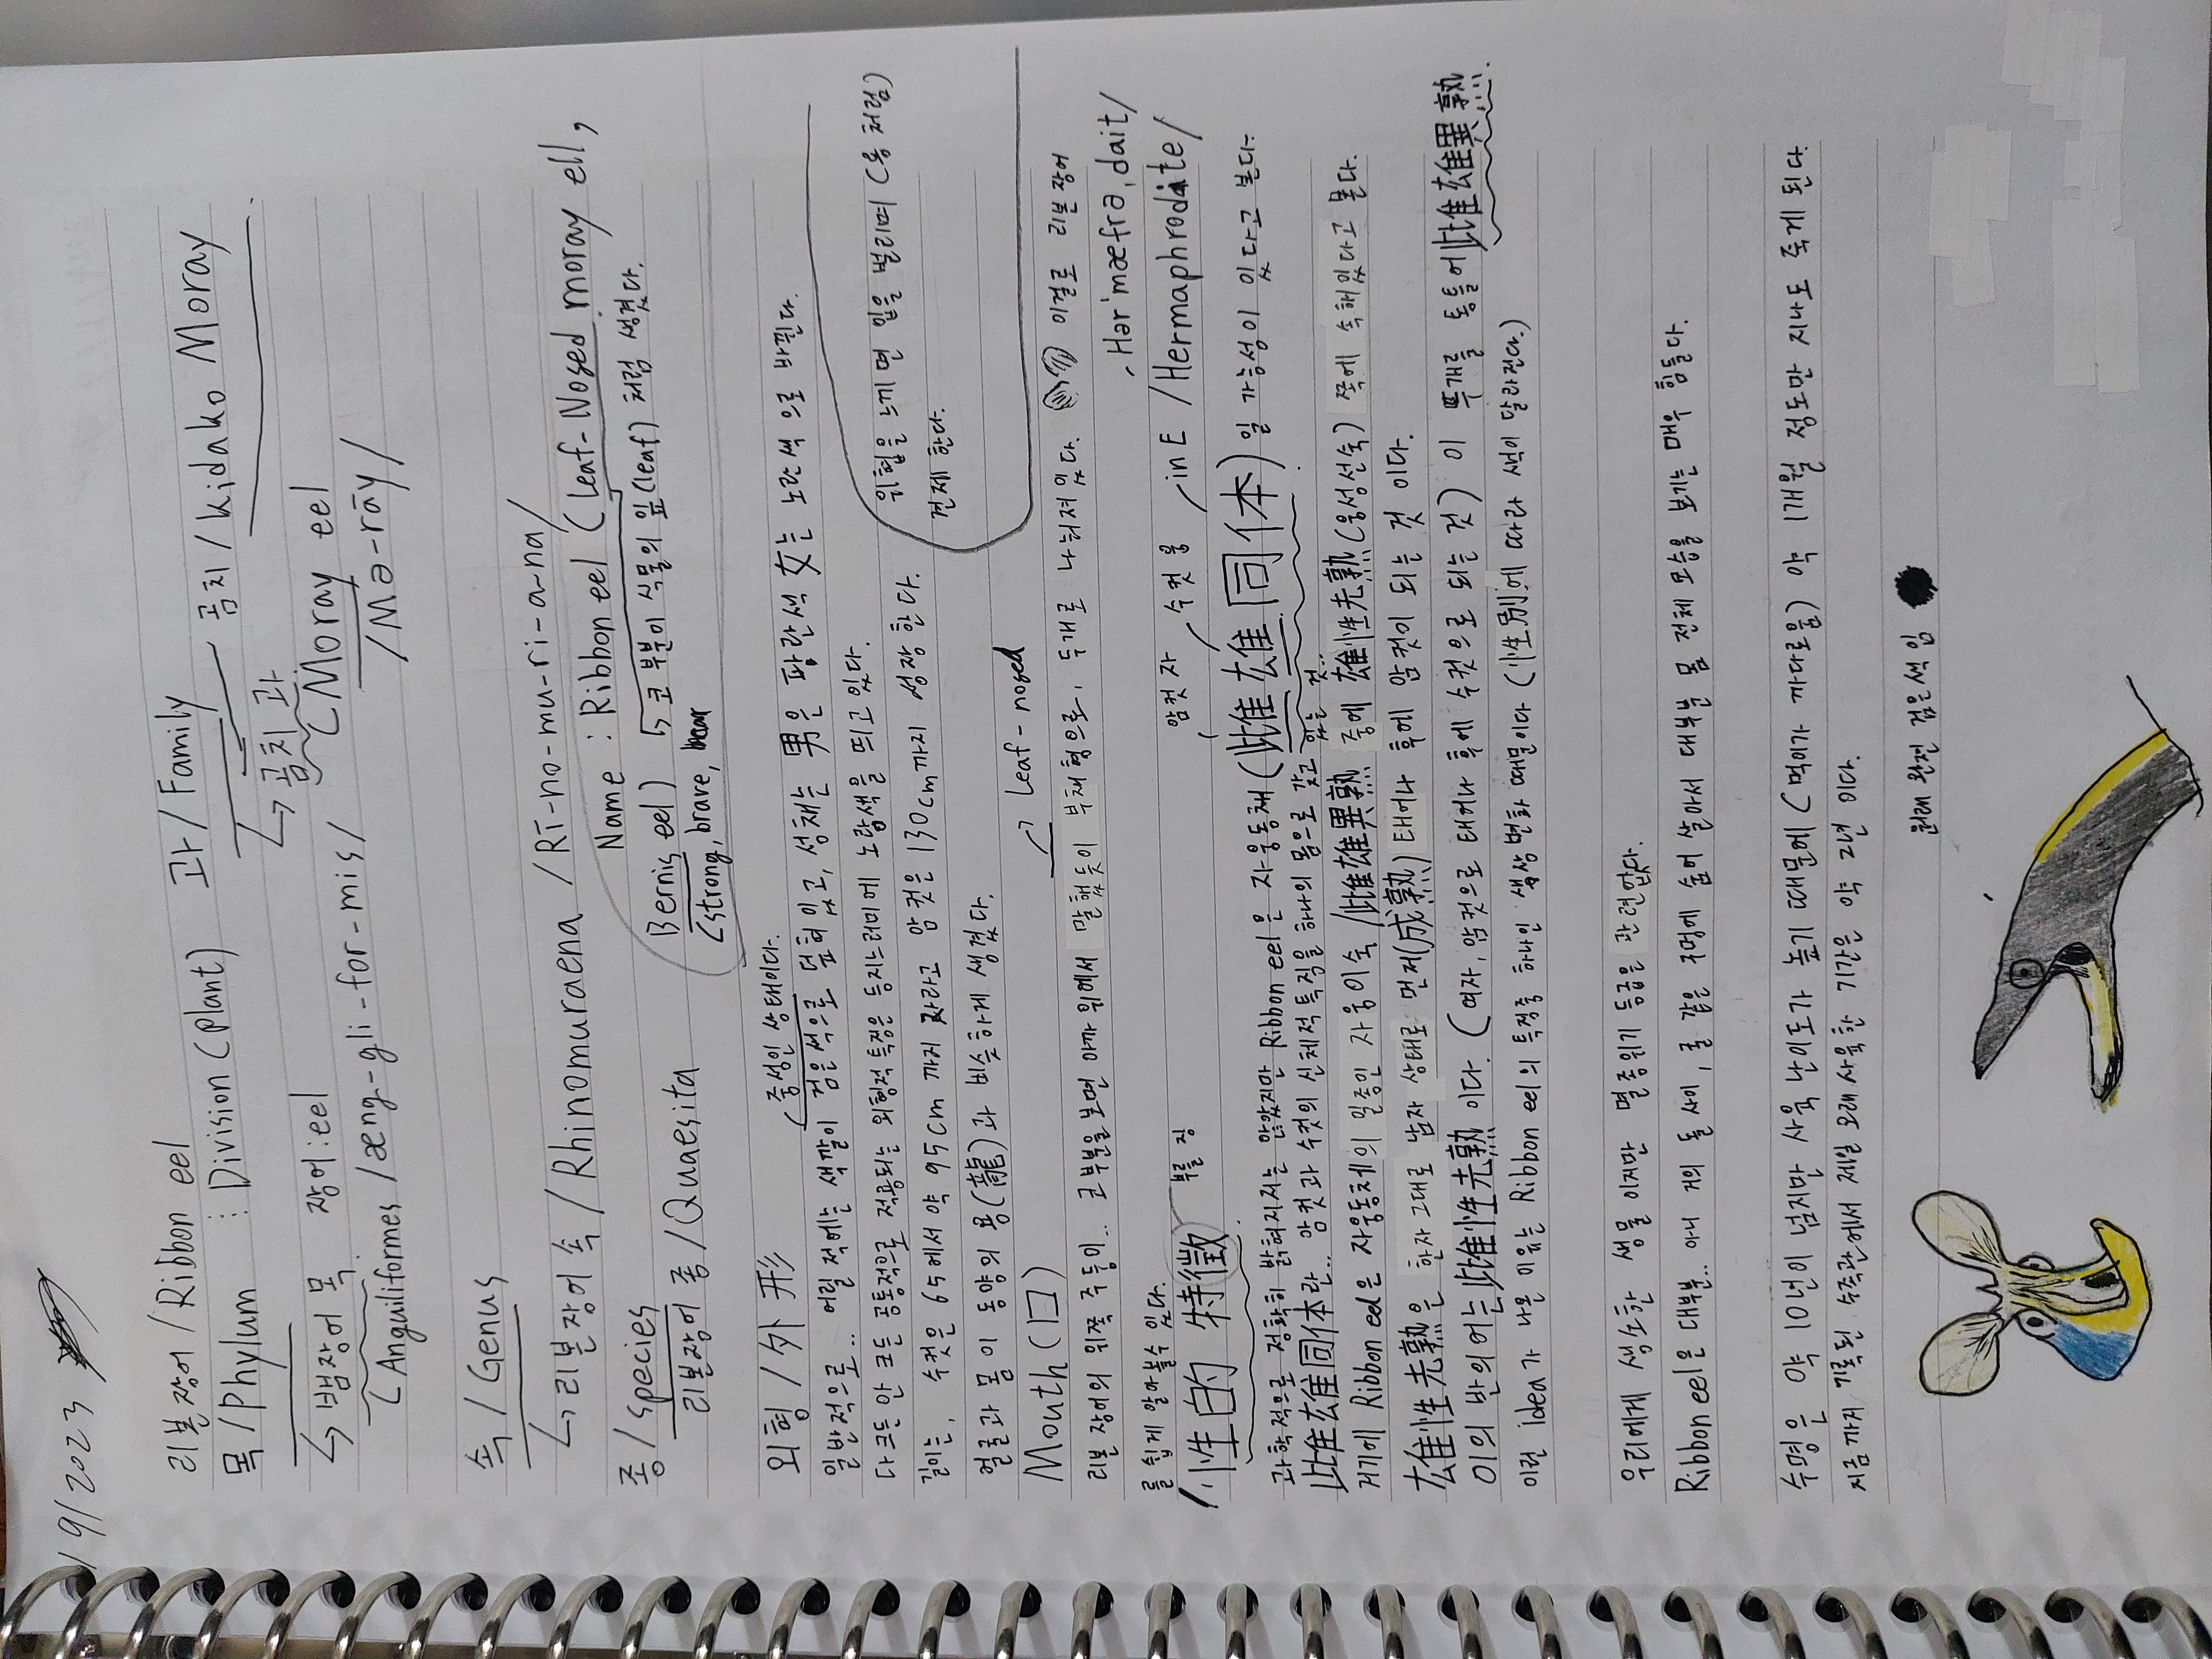 19/2023
리본장어/Ribbon eel 과/Family 곰치/kidako Moray
목/Phylum : Division(plant) ↳ 곰치 과
↳ 뱀장어 목 장어:eel (Moray eel
(Anguiliformes/æng-gli-for-mis/ /Mə-rāy/
속/Genus
↳ 리본장어 속/Rhinomuraena/Rī-no-mu-ri-a-na/
종/species Name : Ribbon eel (Leaf-Nosed moray ell,
리본장어 종/Quaesita Bernis eel) ↳ 코 부분이 식물의 잎(leaf) 처럼 생겼다.
(strong, brave, bear
(중성인 상태이다.
외형/外形
일반적으로.. 어릴 적에는 색깔이 검은색으로 덮혀있고, 성채는 男은 파란색 女는 노란색으로 바뀐다.
다 크든 안 크든 공통적으로 적용되는 외형적 특징은 등지느러미에 노랑색을 띄고 있다.
길이는, 수컷은 65에서 약 95cm 까지 자라고 암컷은 130cm까지 성장한다.
얼굴과 몸이 동양의 용(龍)과 비슷하게 생겼다.
위협을 느끼면 입을 벌리며 (용 처럼)
견제 한다.
Mouth(口) → Leaf-nosed
리본 장어의 위쪽 주둥이.. 코부분을 보면 아까 위에서 말했듯이 부채형으로, 두개로 나눠져있다. 이걸로 리본장어
를 쉽게 알아볼수 있다.
Hər'mæfrə,dait/
암컷 자 수컷 웅 in E /Hermaphrodite/
/性的 特徵 부를 징
과학적으로 정확히 밝혀지지는 않았지만 Ribbon eel은 자웅동체(雌雄同体)일 가능성이 있다고 본다.
雌雄同体란.. 암컷과 수컷의 신체적특징을 하나의 몸으로 갖고 있는 것..
게기에 Ribbon eel은 자웅동체의 일종인 자웅이숙/雌雄異熟 중에 雄性先熟(웅성선숙) 쪽에 속해있다고 본다.
雄性先熟은 한자 그대로 남자 상태로 먼저(成熟) 태어나 후에 암컷이 되는 것 이다.
이의 반의어는 雌性先熟 이다. (여자, 암컷으로 태어나 후에 수컷으로 되는 것) 이 두개를 통틀어 雌雄異熟.
이런 idea가 나온 이유는 Ribbon eel의 특징중 하나인 색상변화 때문이다 (性別에 따라 색이 달라진다.)
우리에게 생소한 생물 이지만 멸종위기 등급은 관련없다.
Ribbon eel은 대부분.. 아니 거의 돌 사이, 굴 같은 구멍에 숨어 살아서 대부분 몸 전체 모습을 보기는 매우 힘들다.
수명은 약 10년이 넘지만 사육 난이도가 높기 때문에 (먹이가 까다로움) 약 1개월 정도만 지나도 죽게 된다.
지금까지 기록된 수족관에서 제일 오래 사육한 기간은 약 2년 이다.
원래 완전 검은색 임